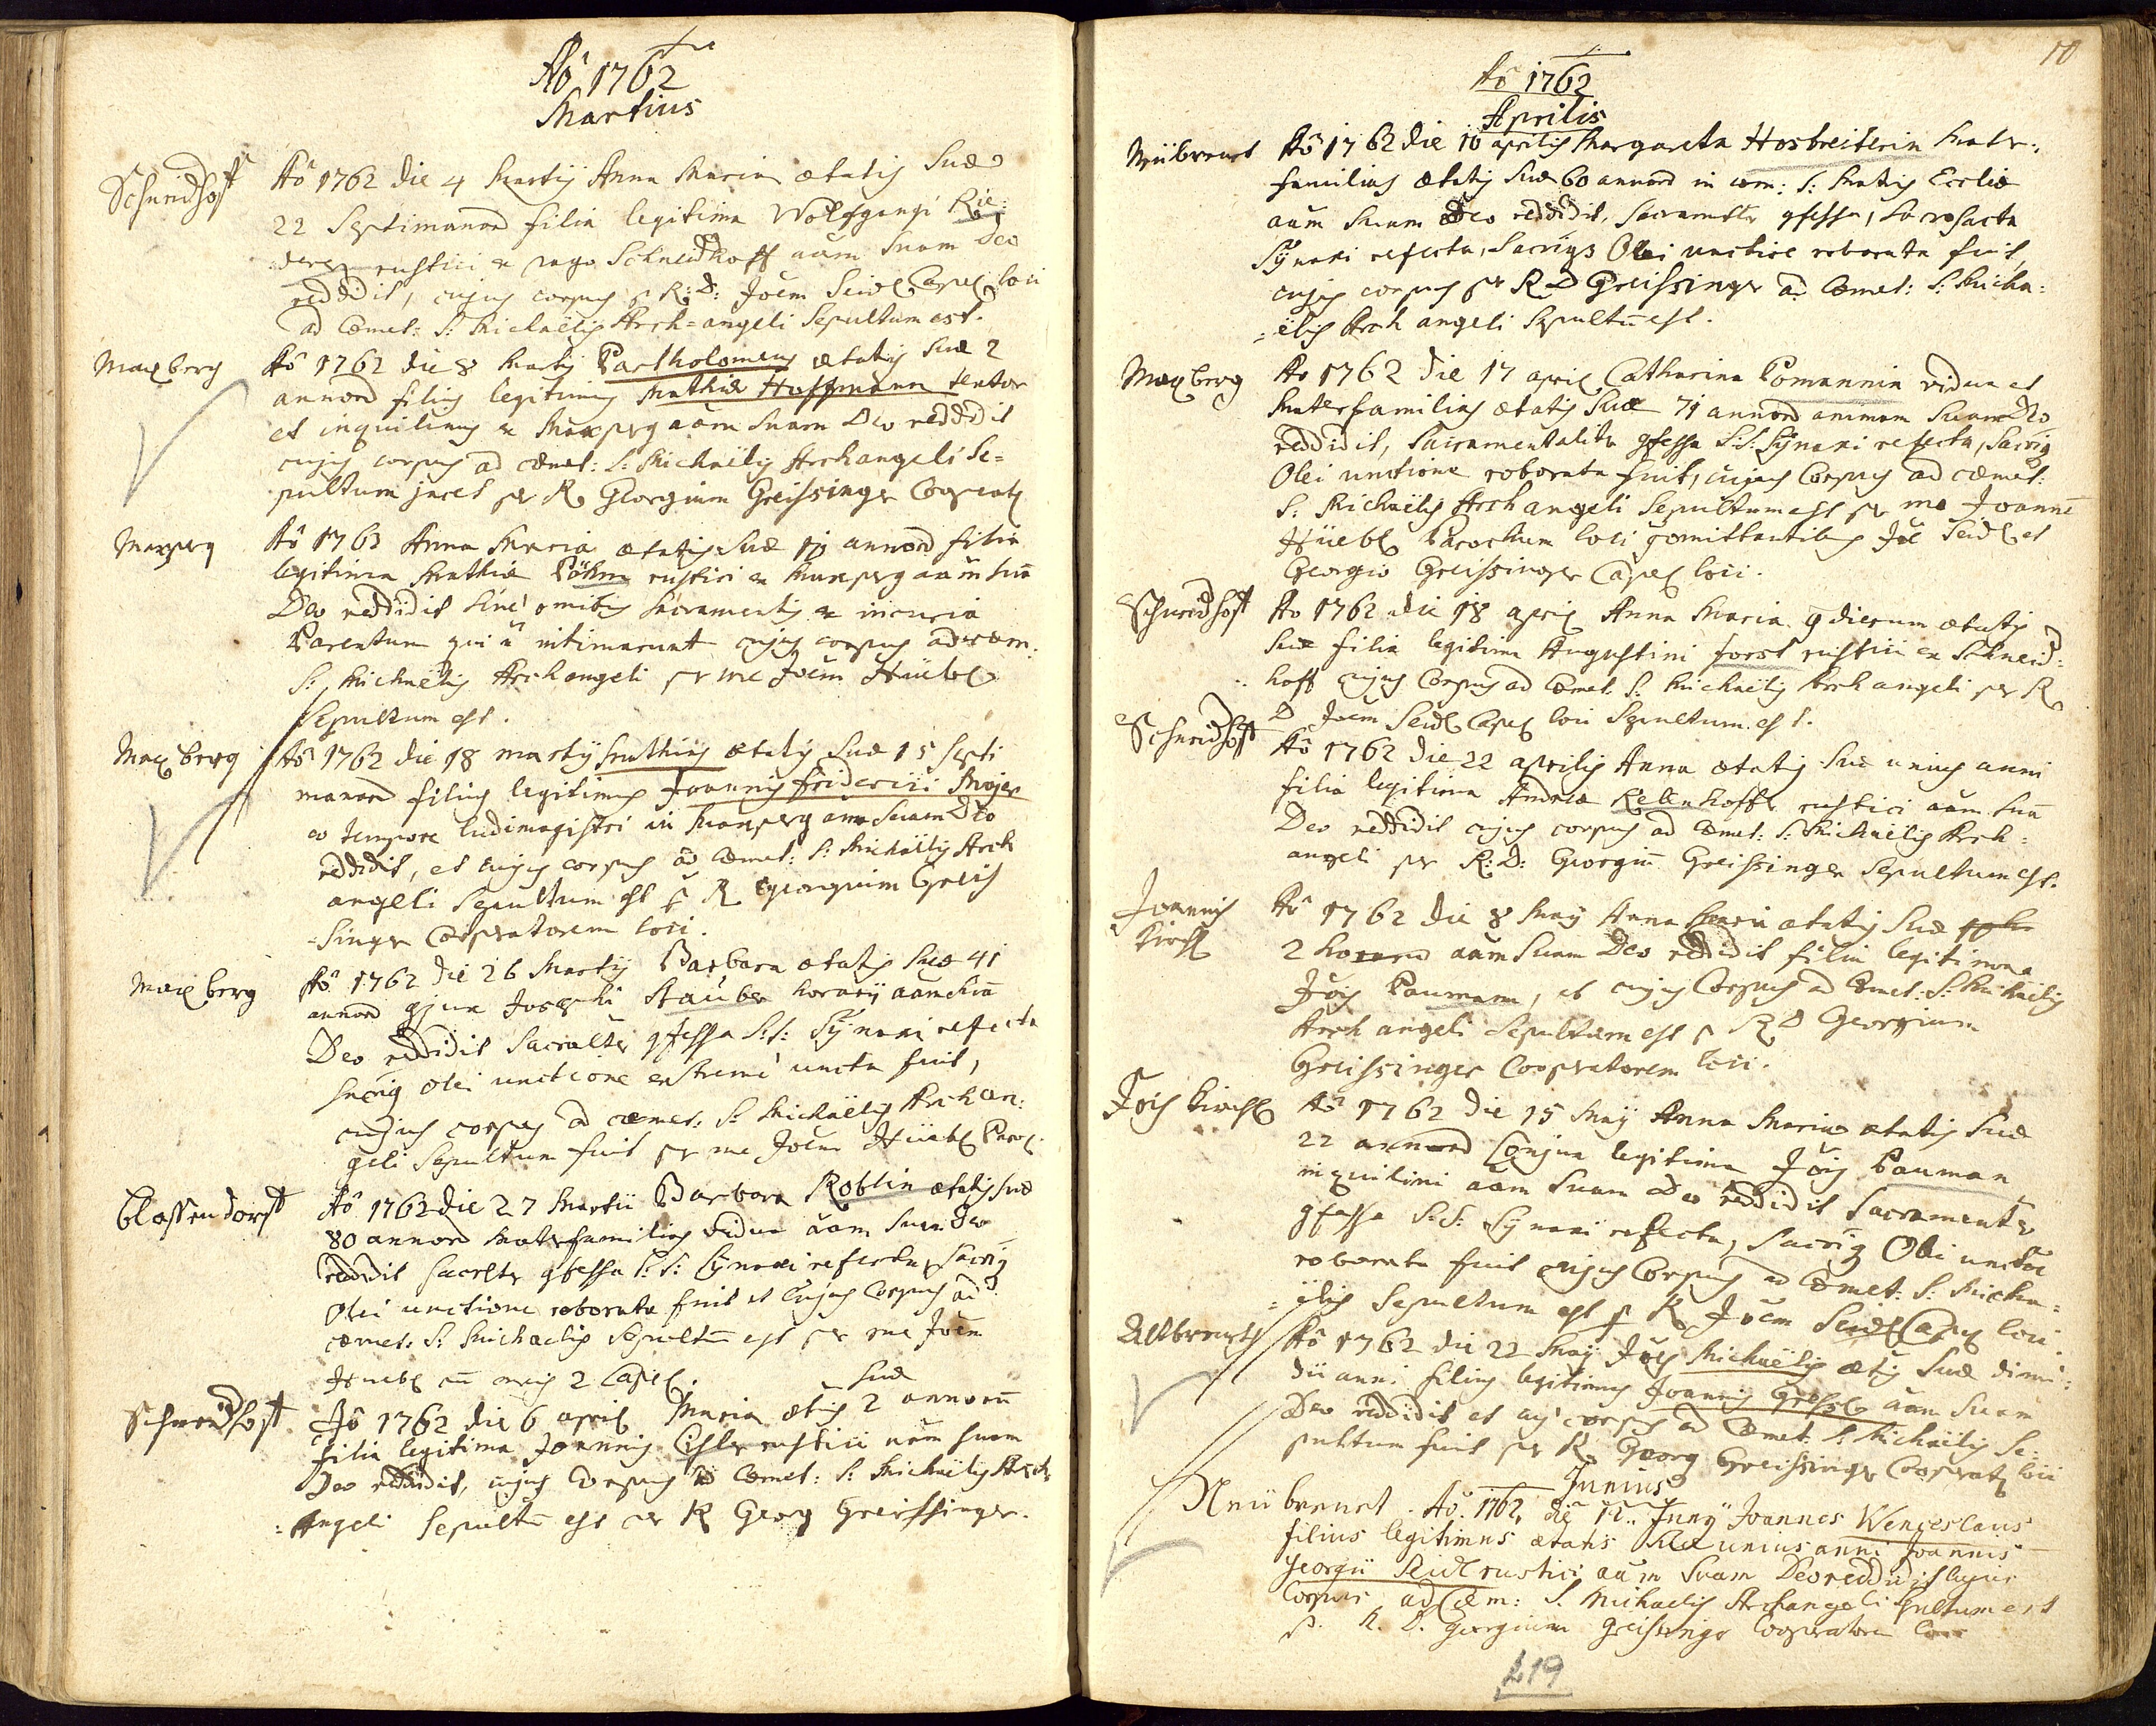 Aõ 1762
Martius
Schneidhoff
Aõ 1762 die 4 Martij Anna Maria ætatis suæ
22 Septimanarũ filia legitima Wolfgangi Rie:
derer rustici ex pago Schneidhoff aũm suam Deo
reddidit, cujus corpus p R: D: Joẽm Seidl Capel: loci
ad Cœmet: S: Michaëlis Arch=angeli Sepultum est.
Maxberg
Aõ 1762 die 8 Martij Partholomeus ætatis suæ 2
annorũ filius legitimus Mathiæ Hoffmann textor
et inquilinus ex Maxperg aũm suam Deo reddidit
cujus corpus ad cœmet: S: Michaëlis Archangeli Se=
pultum jacet per R Georgium Greissinger Cooperat:
Maxperg
Aõ 1763 Anna Maria ætatis suæ 10 annorũ filia
legitima Mathiæ Pöhm rustici ex Maxperg aũm suã
Deo reddidit sine omibus Sacramentis ex incuria
Parentum qui ñ intimarunt cujus corpus ad cœm:
S: Michaëlis Archangeli per me Joẽm Hüebl
Sepultum est.
Maxberg
Aõ 1762 die 18 martij Mathias ætatis suæ 15 Septi
manarũ filius legitimus Joannis friderici Mojer
eo tempore ludimagistri in Maxperg amã suam Deo
reddidit, et cujus corpus ad Cœmet: S: Michaëlis Arch
angeli Sepultum est p R Georgium Greis
=singer Cooperatorem loci.
Maxberg
Aõ 1762 die 26 Martij Barbara ætatis suæ 41
annorũ gjux Josephi Stauber aũm suã
Deo reddidit Sacraltr gfessa S:S: Sÿnaxi refecta
sacriq olei unctione extremi uncta fuit,
cujus corpus ad cœmet: S: Michaëlis Archan:
geli Sepultum fuit per me Joem Hüebl Paroc:
Clossendorff
Aõ 1762 die 27 Martii Barbara Roblin ætatis suæ
80 annorũ Materfamilias vidua aũm suam Deo
reddidit Sacraltr gfessa S:S: Sÿnaxi refecta, sacriq
Olei unctione roborata fuit et cujus Corpus ad
cœmet: S: Michaelis Sepultũ est per me Joẽm
Hüebl cũ meis 2 Capel.
Schneidhoff
Aõ 1762 die 6 april Maria ætatis suæ 2 annorũ
filia legitima Joannis rustici aũm suam
Deo reddidit, cujus Corpus ad Cœmet: S: Michaëlis Arch
=Angeli Sepultũ est per R Georg Greissinger.
10
Aõ 1762
Aprilis
Neübrenst
Aõ 1762 die 10 aprilis Margareta Hosbreiterin Mater:
familias ætatis suæ 60 annorũ in com: S: Matris Eccliæ
aũm suam Deo reddidit, Sacramẽtr gfessa, Sacrosacta
Sÿnaxi refecta, Sacriqz Olei unctiõe roborata fuit,
cujus corpus per R D Greissinger ad Cœmet: S: Micha:
=ëlis Arch angeli Sepultũ est.
Maxberg
Ao 1762 die 17 april Catharina Pomannin vidua et
Materfamilias ætatis suæ 71 annorũ animam suam Deo
reddidit, Sacramentalitr gfessa S:S: Sÿnaxi refecta, Sacriq
Olei unctione roborata fuit, cujus Corpus ad cœmet:
S: Michaëlis Archangeli Sepultum est per me Joannẽ
Hüebl Parochum loci Joẽ Seidl et
Georgio Greissinger Capel loci.
Schneidhoff
Ao 1762 die 18 april Anna Maria 9 dierum ætatis
suæ filia legitima Augustini forst rustici ex Schneid:
hoff cujus Corpus ad Cœmet. S: Michaëlis Arch angeli per R
D Joem Seidl Capel loci Sepultum est.
Schneidhoff
Aõ 1762 die 22 aprilis Anna ætatis suæ unius anni
filia legitima Andreæ Rebenhoffer rustici aũm suã
Deo reddidit cujus corpus ad Cœmet: S: Michaëlis Arch=
angeli per R: D: Georgiũ Greissinger Sepultum est.
Joannis
Kirchl
Aõ 1762 die 8 Maÿ Anna Maria ætatis suæ
2 horarũ aũm suam Deo reddidit filia legitima
Jõis Paumann, et cujus Corpus ad Cœmet: S: Michaëlis
Arch angeli Sepultum est p R D Georgium
Greissinger Cooperatorem loci.
Jõis Kirchl
Aõ 1762 die 15 Maÿ Anna Maria ætatis suæ
22 annorũ Conjux legitima Jõis Pauman
inquilini aũm suam Deo reddidit Sacramentr
gfessa S:S: Sÿnaxi refecta, Sacriq Olei unctõe
roborata fuit cujus Corpus ad Cœmet: S: Micha=
=ëlis Sepultum est p R Joẽm Seidl Capel loci.
Altbrenst
Aõ 1762 die 22 Maÿ Jões Michaëlis ætis suæ dimi:
dii anni filius legitimus Joannis aũm suam
Deo reddidit et cujus corpus ad Cœmet. S. Michaëlis Se:
pultum fuit per R. Georg Greissinger Cooperat: loci
Junius
Neübrenst
Aõ. 1762, die 12. Junÿ Joannes Wenceslaus
filius legitimus ætatis suæ unius anni Joannis
georgii Seidl rustici aũm suam Deo reddidit cujus
Corpus ad Cœm: S. Michaelis Archangeli sepultum est
p. R. D. georgium greissinger Cooperatorem loci
L19